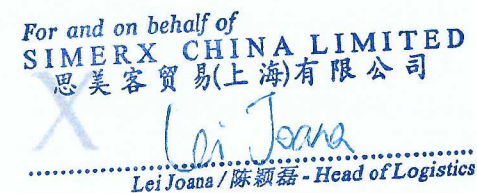 For and on behalf of
SIMERX CHINA LIMITED
思美客贸易(上海)有限公司
X
Lei Joana
Lei Joana / 陈颖磊 - Head of Logistics